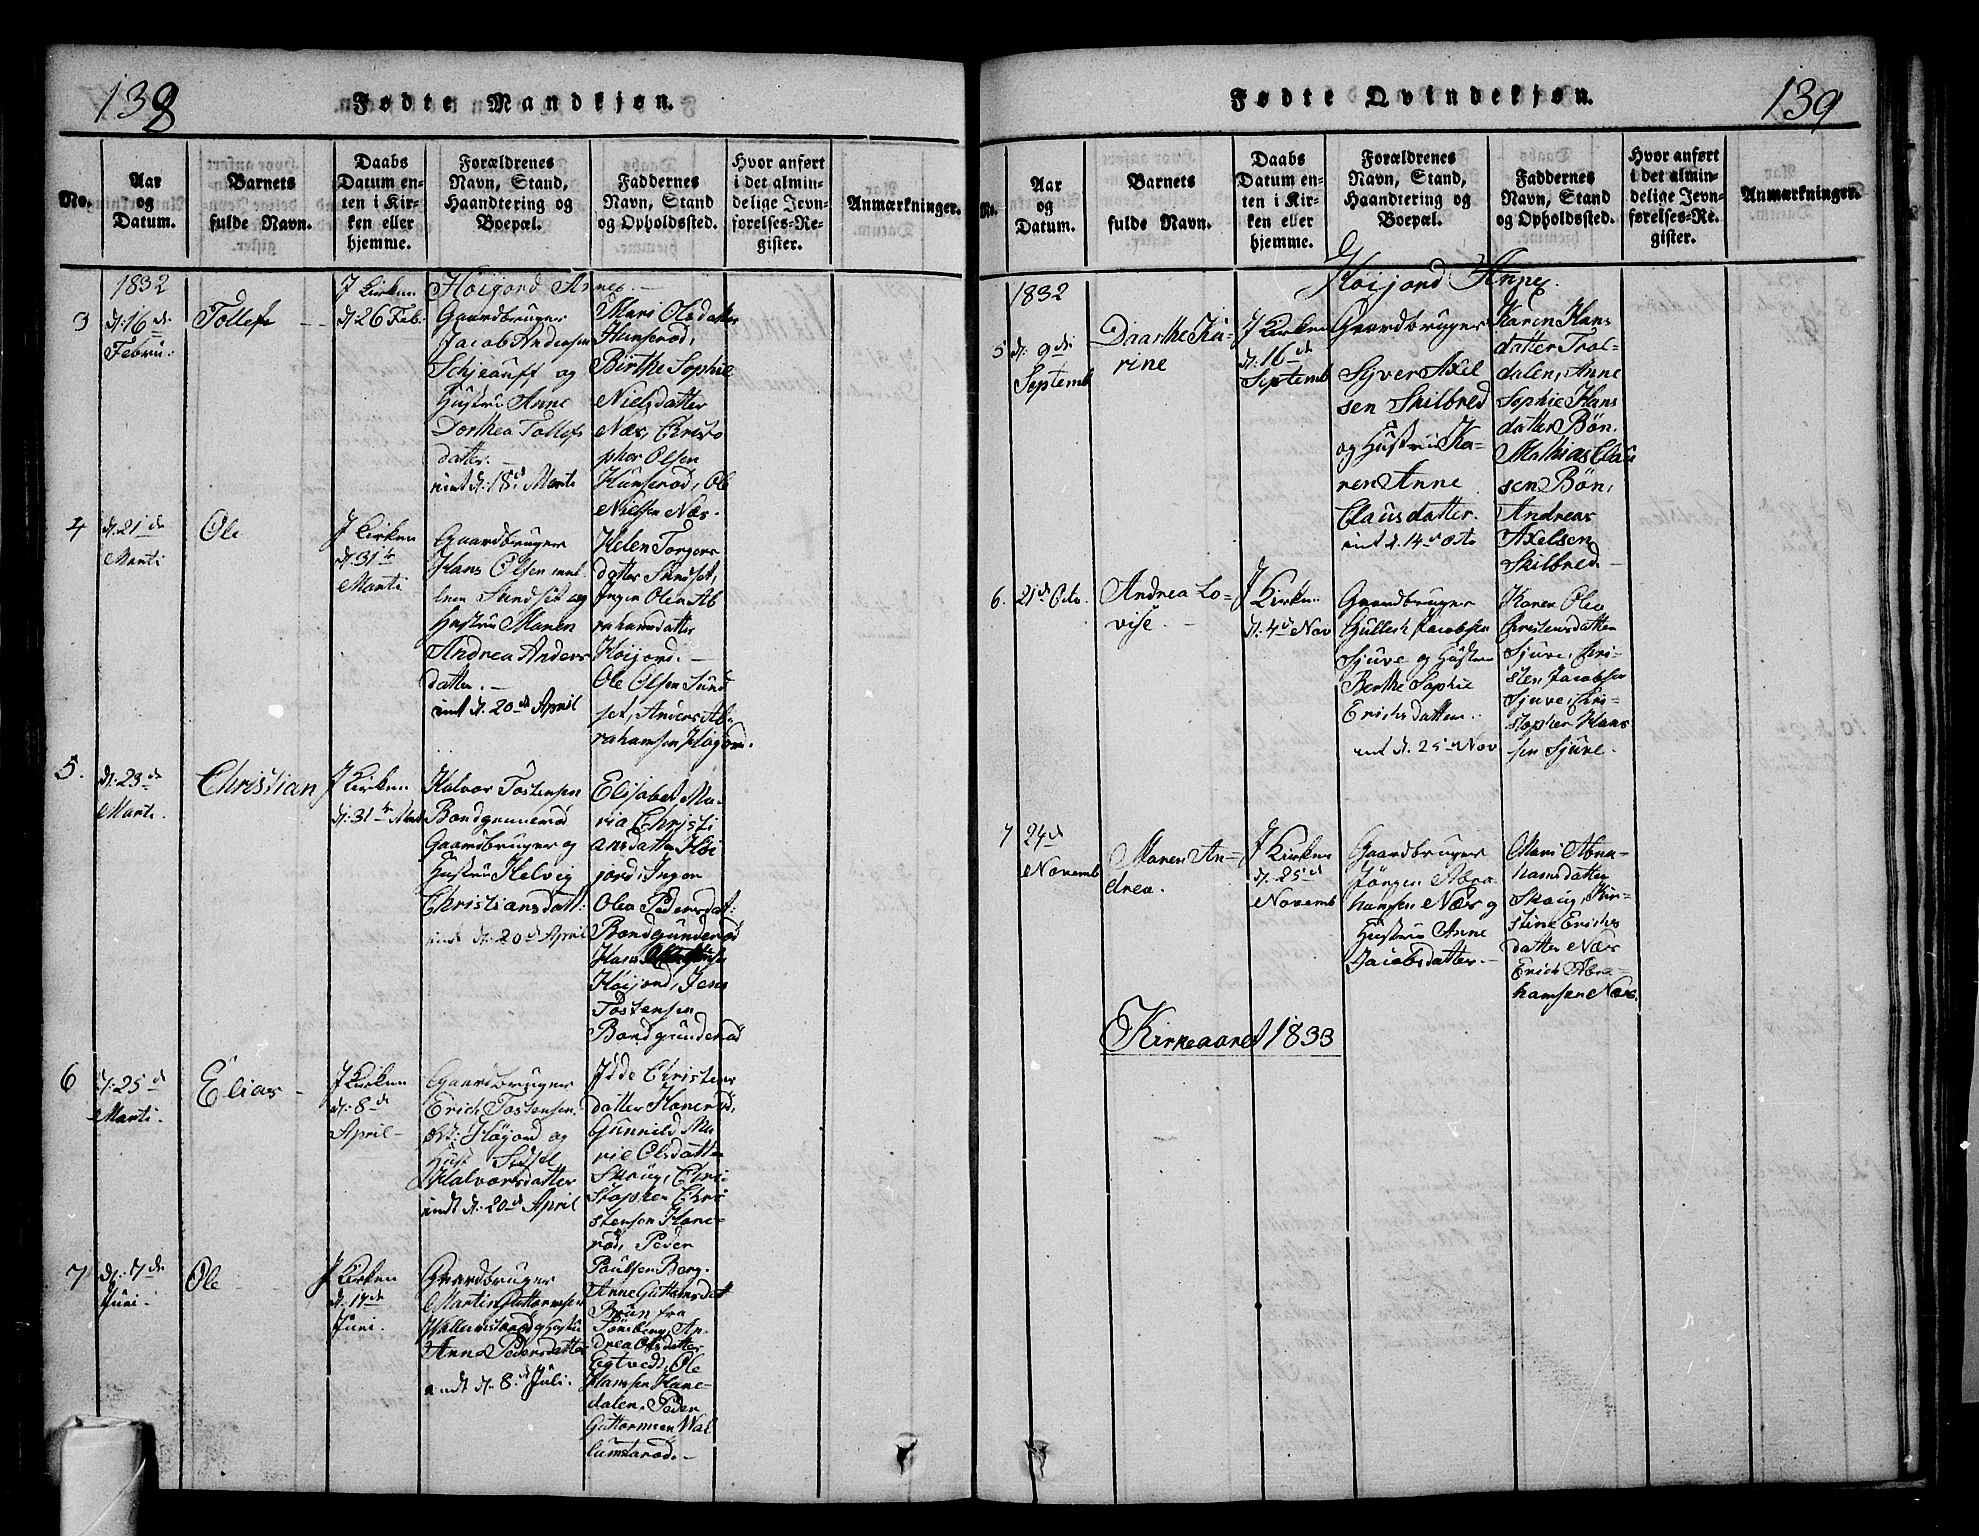 138
Fødte Mandkjøn.
No.
Aar
og
Datum.
Barnets
fulde Navn.
Daabs
Datum en-
ten i Kir-
ken eller
hjemme.
Forældrenes
Navn, Stand,
Haandtering og
Boepæl.
Faddernes
Navn, Stand
og Opholdssted.
Hvor anført
i det almin-
delige Jevn-
førelses-Re-
gister.
Anmærkninger.
1832
Høijord Annex.
3
d: 16de
Febru:
Tollef
J Kirken
d: 26 Feb:
Gaardbruger
Jacob Andersen
Schjeauff og
Hustru Anne
Dorthea Tollefs
datter.
int d: 18d Marti
Mari Olsdatter
Hunserød,
Birthe Sophie
Nielsdatter
Næs, Christo
pher Olsen
Hunserød, Ole
Nielsen Næs.
4
d: 21de
Marti
Ole
J Kirken
d: 31te
Marti
Gaardbruger
Hans Olsen
Sundset og
Hustru Maren
Andrea Anders
datter.
int d: 20de April
Helen Torgers
datter Sundset,
Inger Olea Ab
rahamsdatter
Høijord.
Ole Olsen Sund
set, Anders Ab
rahamsen Høgord.
5.
d: 23de
Marti.
Christian
J Kirken
d: 31te Mart
Halvor Tostensen
Bondgrunnerød
Gaardbruger og
Hustru Helvig
Christiansdatt:
int d: 20d April
Elisabet Ma-
ria Christi
ansdatter Høi
jord, Inger
Olea Pedersdat:
Bondgunderød
Hans
Høijord, Jens
Tostensen
Bondgunderød
6
d: 25de
Marti.
Elias
J Kirken
d: 8de
April
Gaardbruger
Erich Tostensen
Høgord og
Hust Sidsel
Halvorsdatter
indt d: 20d April
Idde Christens
datter Hanerød,
Gunnild Ma
rie Olsdatter
Skrug, Chri-
stopher Chri
stensen Hane-
rød, Peder
Paulsen Berg.
7
d: 7de
Juni.
Ole
J Kirken
d: 17de
Juni.
Gaardbruger
Martin Guttormsen
Wallumstarød og Hustru
Anne Pedersdatter
indt d: 8d Juli.
Anne Guttormsdat
Brun fra
Tønsberg, An-
drea Olsdatter
Egtvedt, Ole
Hansen Hane-
dalen, Peder
Guttormsen Wal
lumstarød.
139
Fødte Qvindekjøn.
No.
Aar
og
Datum.
Barnets
fulde Navn.
Daabs
Datum en-
ten i Kir-
ken eller
hjemme.
Forældrenes
Navn, Stand,
Haandtering og
Boepæl.
Faddernes
Navn, Stand
og Opholdssted.
Hvor anført
i det almin-
delige Jevn-
førelses-Re-
gister.
Anmærkninger.
1832
Høijord Annex.
5
d: 9de
Septemb
Daarthe Ka-
rine
J Kirken
d: 16de
Septemb
Gaardbruger
Syver Axel
sen Skilbred
og Hustru Ka-
ren Anne
Clausdatter.
int d. 14d Octo
Karen Hans
datter Trol-
dalen, Anne
Sophie Hans
datter Bøn,
Mathias Clau
sen Bøn,
Andreas
Axelsen
Skilbred
6.
21de Octo.
Andrea Lo-
vise.
J Kirken
d: 4de Nov
Gaardbruger
Gullich Jacobsen
Sjuve og Hustru
Berthe Sophie
Erichsdatter.
int d. 25de Nov
Karen Olea
Christensdatter
Sjuve, Chri-
sten Jacobsen
Sjuve, Chri-
stopher Hans
sen Sjuve.
7
24de
Novemb
Maren An-
drea.
J Kirken
d: 25de
Novemb
Gaardbruger
Jørgen Abra
hamsen Næs og
Hustru Anne
Jacobsdatter.
Mari Abra-
hamsdatter
Skoug, Kir-
stine Erichs
datter Næs
Erich Abra-
hamsen Næs.
Kirkeaaret 1833